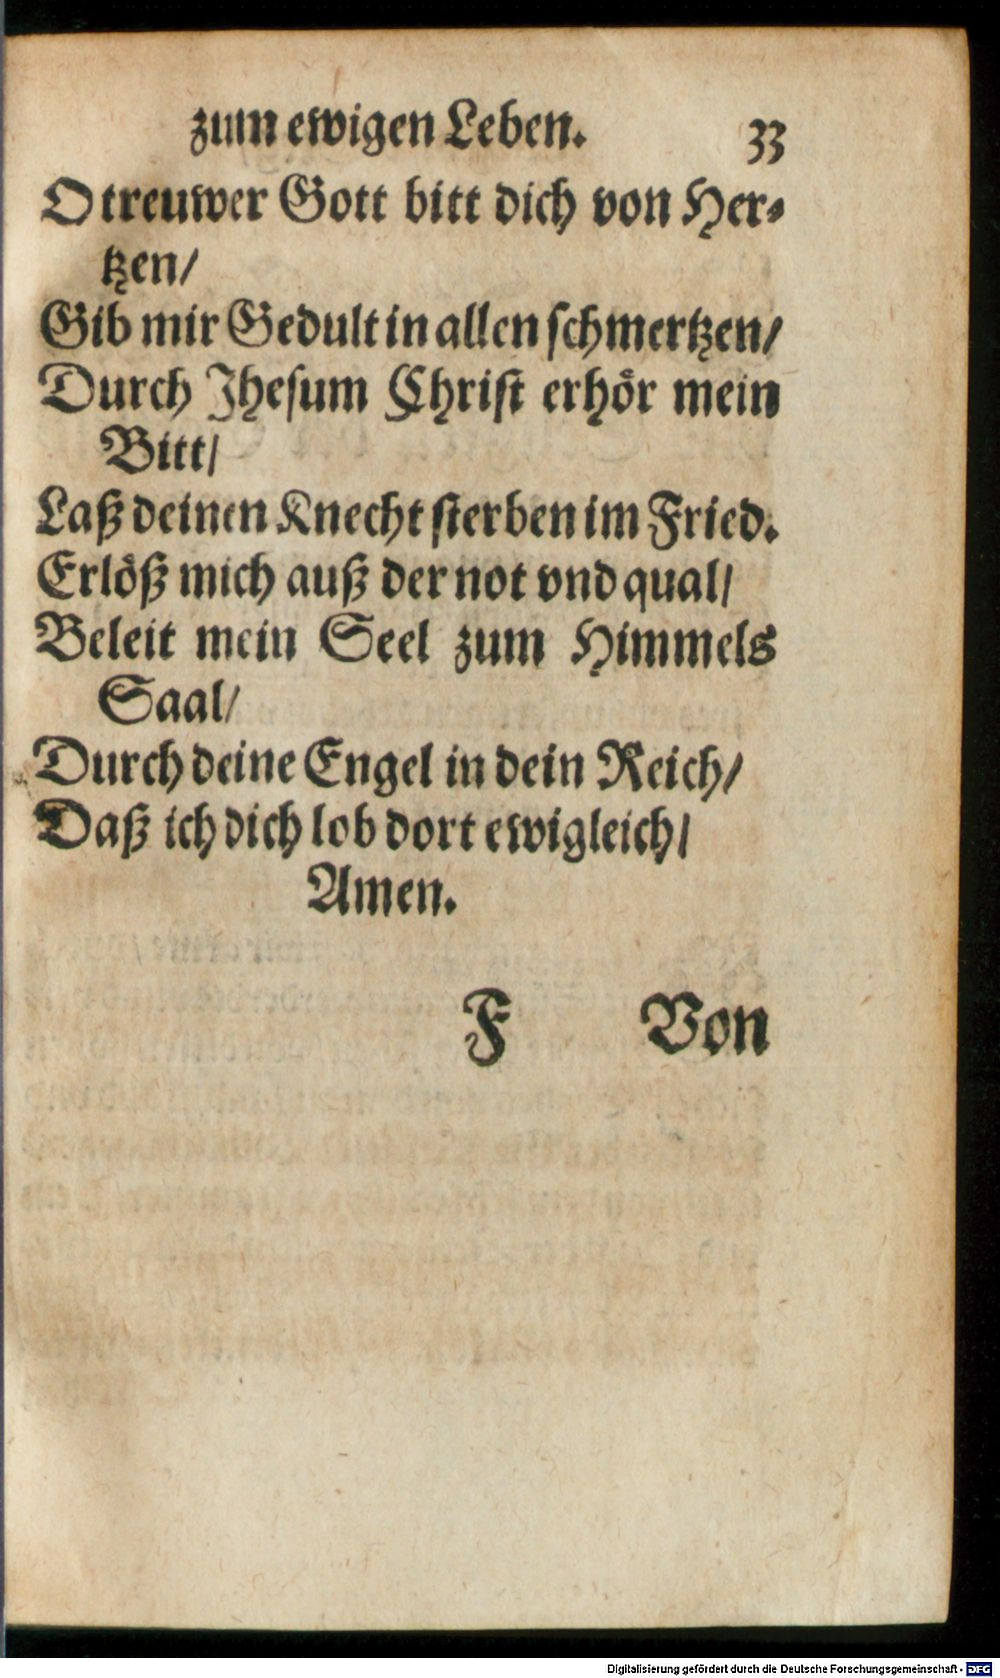 zum ewigen Leben. 33
O treuwer Gott bitt dich von Her-
tzen/
Gib mir Gedult in allen schmertzen/
Durch Jhesum Christ erhör mein
Bitt/
Laß deinen Knecht sterben im Fried.
Erlöß mich auß der not vnd qual/
Beleit mein Seel zum Himmels
Saal/
Durch deine Engel in dein Reich/
Daß ich dich lob dort ewigleich/
Amen.
F Von
Digitalisierung gefördert durch die Deutsche Forschungsgemeinschaft - DFG